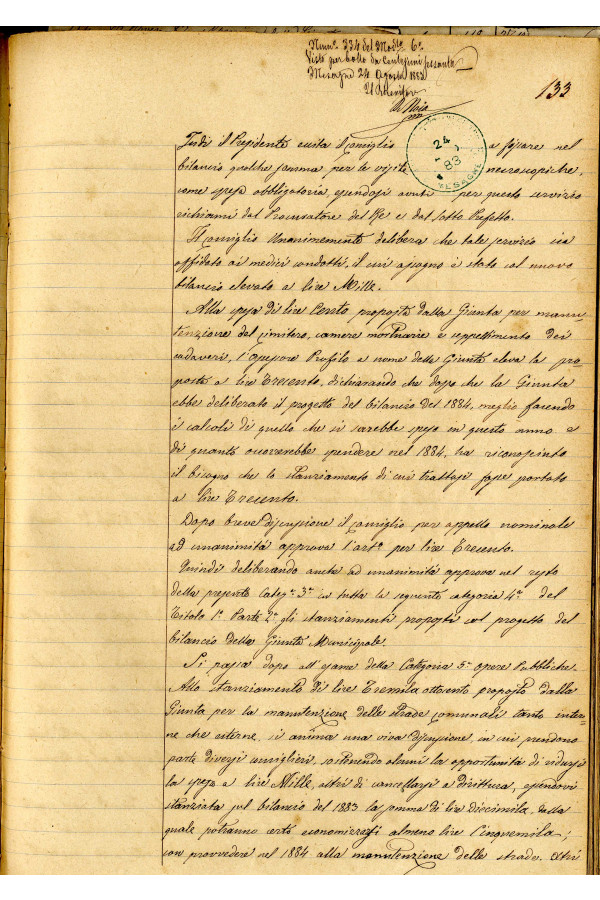 Num.º 334 del Mod.lo 6.º
Visto per bollo da Centesimi sessanta
Mesagne 24 Agosto 1883
Il Ricevitore
133
24
83
MESAGNE
Indi il Presidente invita il Consiglio a fissare nel
bilancio qualche somma per le visite necroscopiche,
come spesa obbligatoria, essendosi avuti per questo servizio
richiami dal Procuratore del Re e dal Sotto Prefetto.
Il Consiglio Unanimemente delibera che tale servizio sia
affidato ai medici condotti, il cui assegno è stato col nuovo
bilancio elevato a lire Mille.
Alla spesa di lire Cento proposta dalla Giunta per manu-
tenzione del cimitero, camere mortuarie e seppellimento dei
cadaveri, l'Assessore Profilo a nome della Giunta eleva la pro-
posta a lire Trecento, dichiarando che dopo che la Giunta
ebbe deliberato il progetto del bilancio del 1884, meglio facendo
i calcoli di quello che si sarebbe speso in questo anno e
di quanto occorrerebbe spendere nel 1884, ha riconosciuto
il bisogno che lo stanziamento di cui trattasi fosse portato
a lire Trecento.
Dopo breve discussione il Consiglio per appello nominale
ad unanimità approva l'art.º per lire Trecento.
Quindi deliberando anche ad unanimità approva nel resto
della presente Categ.ª 3.ª in tutta la seguente categoria 4.ª del
Titolo 1.º Parte 2.ª gli stanziamenti proposti col progetto del
bilancio della Giunta Municipale.
Si passa dopo all'esame della Categoria 5.ª opere Pubbliche.
Allo stanziamento di lire Tremila ottocento proposto dalla
Giunta per la manutenzione delle strade comunali tanto inter-
ne che esterne, si anima una viva discussione, in cui prendono
parte diversi consiglieri, sostenendo alcuni la opportunità di ridursi
la spesa a lire Mille, altri di cancellarsi a dirittura, essendovi
stanziata sul bilancio del 1883 la somma di lire Diecimila, dalla
quale potranno certo economizzarsi almeno lire Cinquemila;
con provvedere nel 1884 alla manutenzione delle strade. Altri